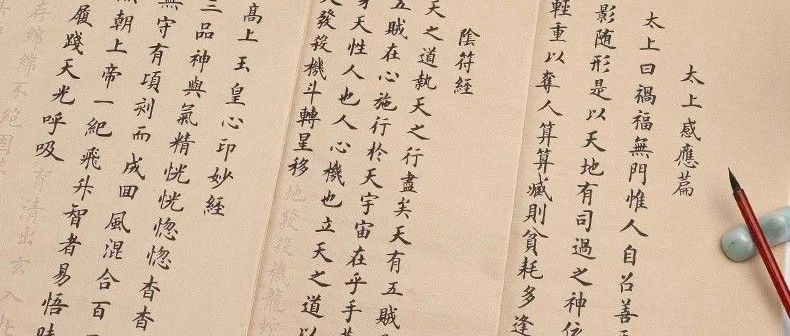 太上感應篇
太上曰禍福無門惟人自召善
影随形是以天地有司過之神依
輕重以奪人算算减則貧耗多逢
陰符經
天之道執天之行盡矣天有五賊
五賊在心施行於天宇宙在乎手
天性人也人心機也立天之道以
發殺機斗轉星移地發殺機龍蛇
高上玉皇心印妙經
三品神與氣精恍恍惚惚杳杳
無守有項刻而成回風混合百
朝上帝一紀飛升智者易悟昧
履踐天光呼吸育清出玄入牝
存綿綿不絕固